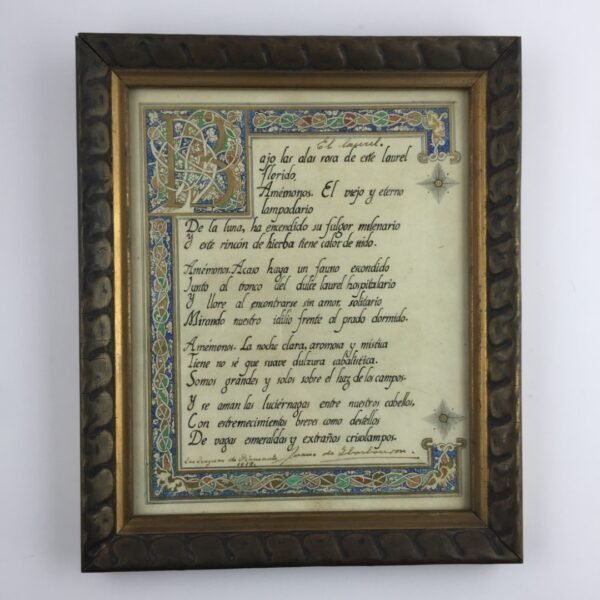 El laurel.
Bajo las alas rosa de este laurel
florido,
Amémonos. El viejo y eterno
lampadario
De la luna, ha encendido su fulgor milenario
Y este rincón de hierba tiene calor de nido.
Amémonos. Acaso haya un fauno escondido
Junto al tronco del dulce laurel hospitalario
Y llore al encontrarse sin amor, solitario
Mirando nuestro idilio frente al prado dormido.
Amémonos. La noche clara, aromosa y mistica
Tiene no sé que suave dulzura cabalística.
Somos grandes y solos sobre el haz de los campos.
Y se aman las luciérnagas entre nuestros cabellos,
Con estremecimientos breves como destellos
De vagas esmeraldas y extraños crisolampos.
Las Lenguas de Diamante Juana de Ibarbourou.